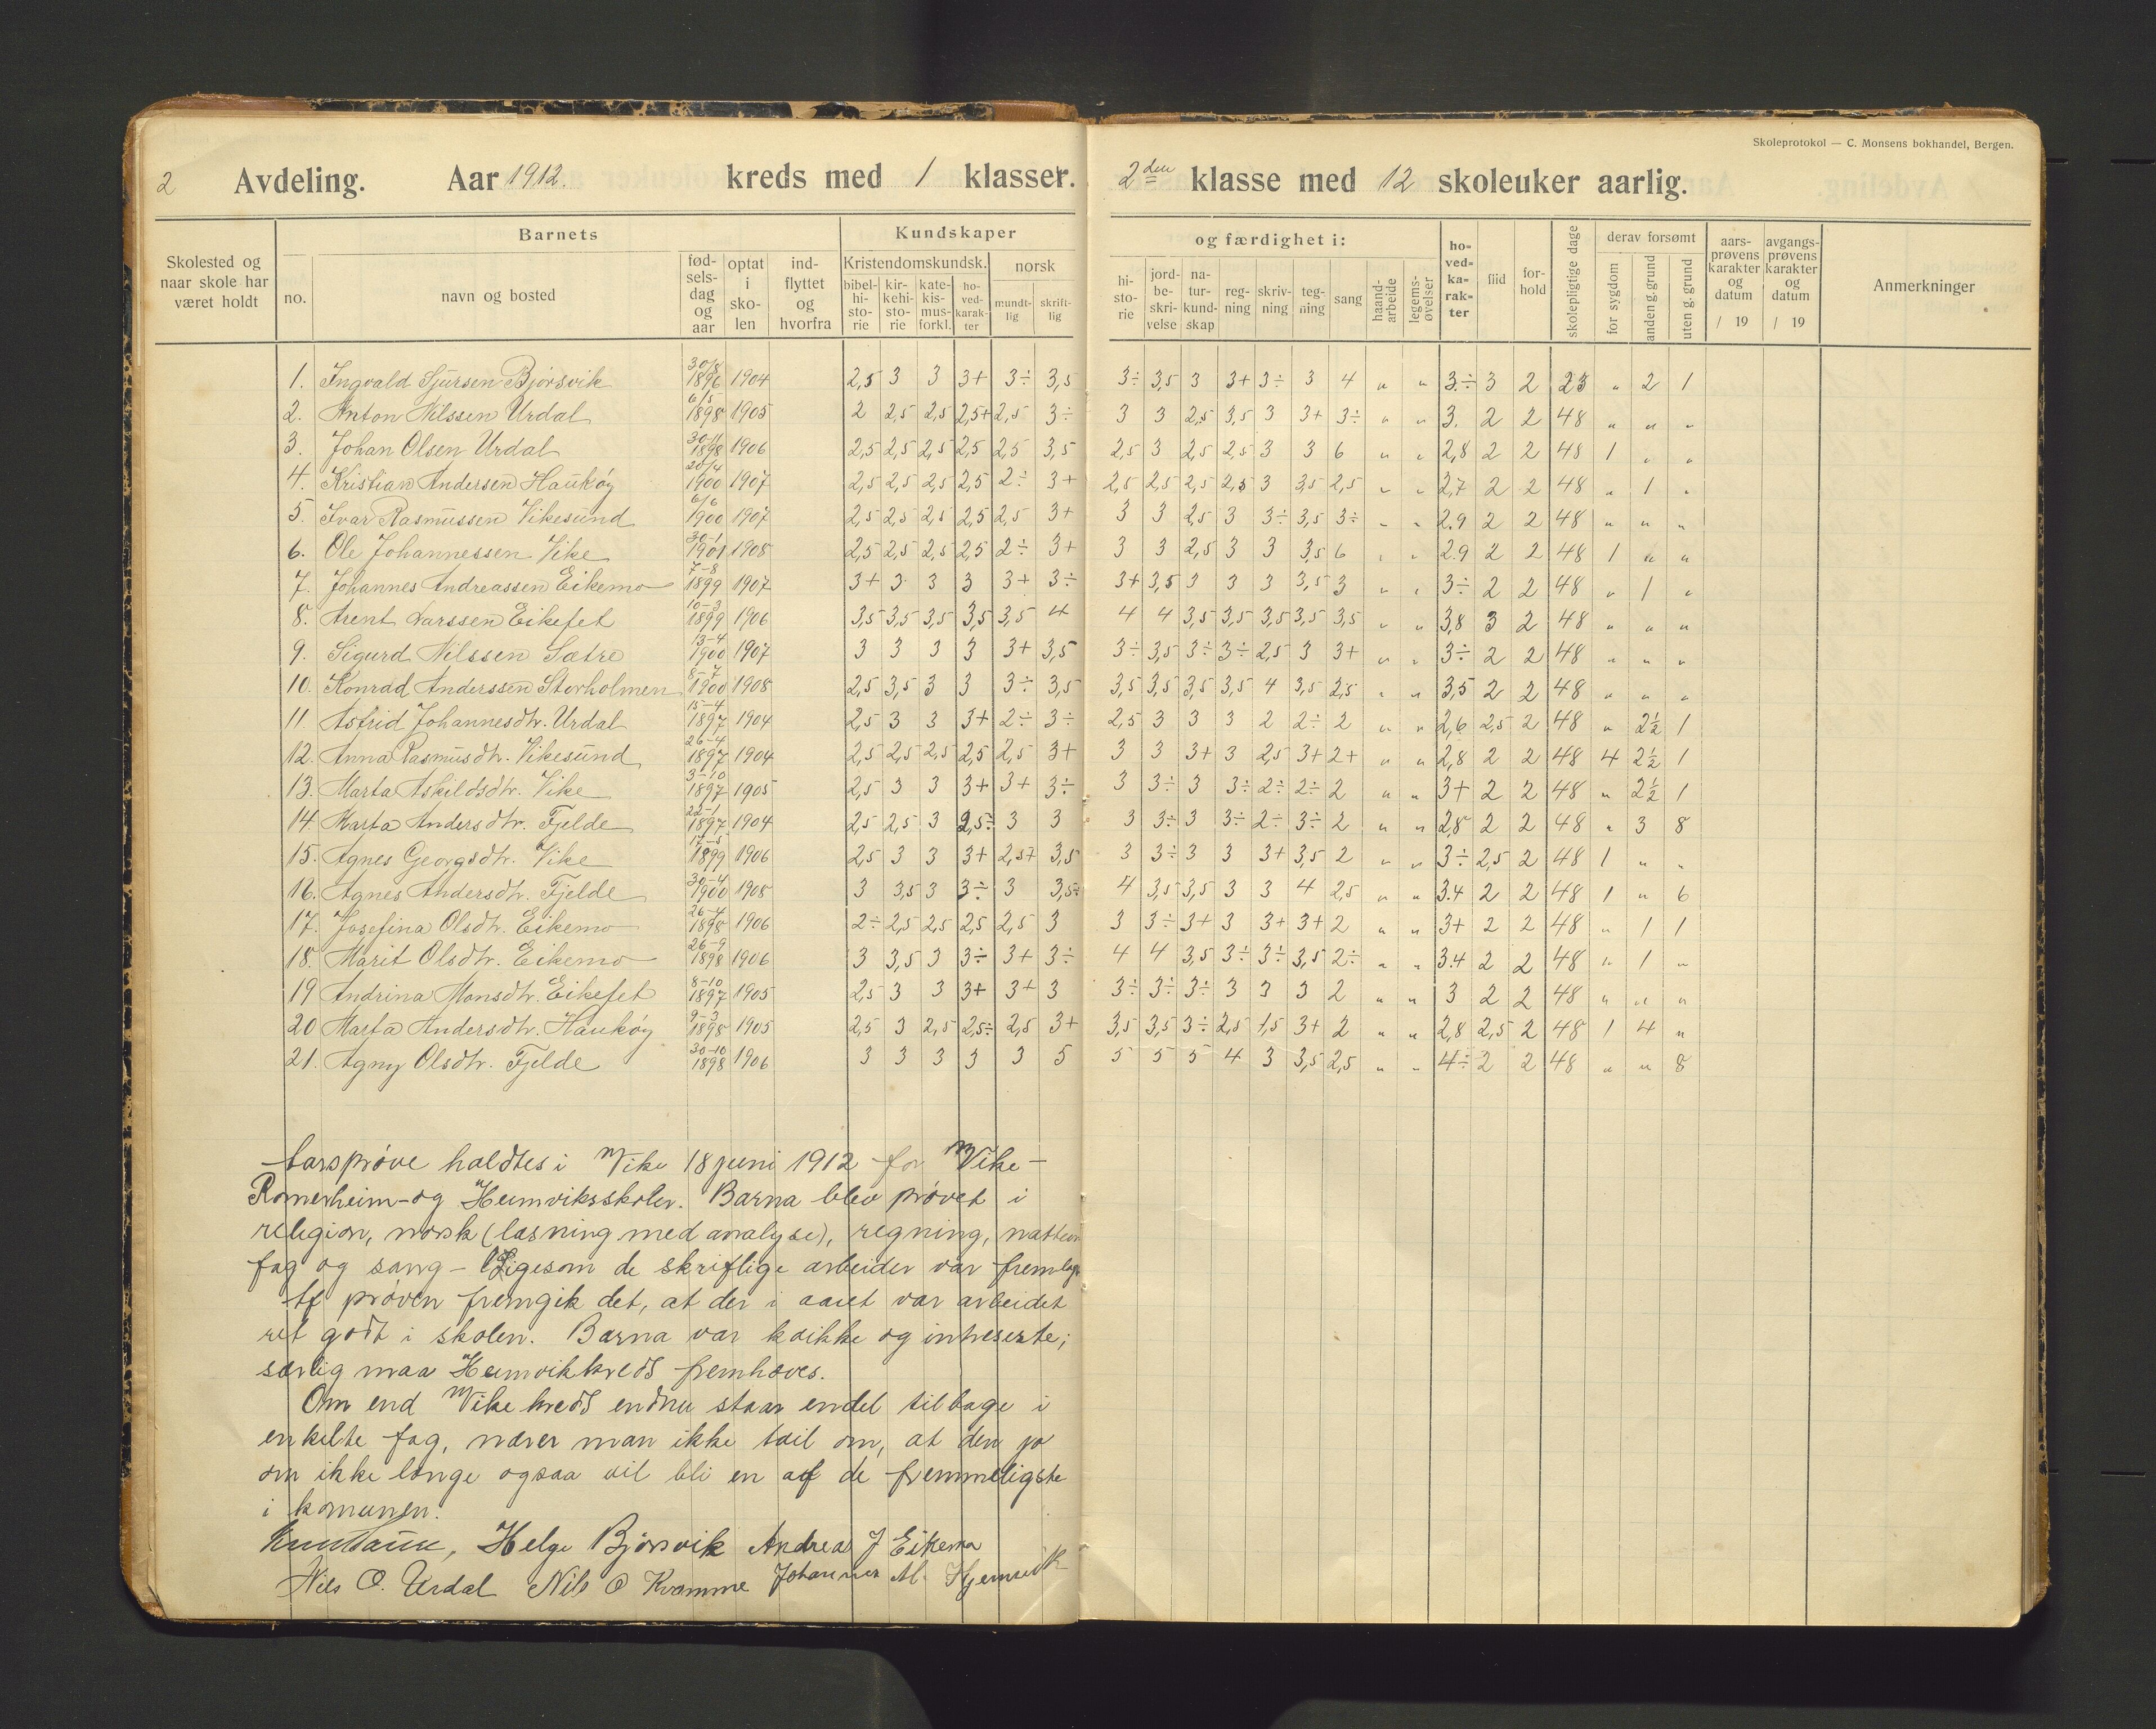 Skoleprotokol — C. Monsens bokhandel, Bergen.
2 Avdeling. Aar 1912. kreds med 1 klasser. 2den klasse med 12 skoleuker aarlig.
Skolested og naar skole har været holdt
Barnets
no. navn og bosted fødselsdag og aar optat i skolen indflyttet og hvorfra
Kundskaper og færdighet i:
Kristendomskundsk. bibelhistorie kirkehistorie katekismus forkl. hovedkarakter norsk mundtlig skriftlig
historie jordbeskrivelse naturkundskap regning skrivning tegning sang haandarbeide legemsøvelser hovedkarakter flid forhold skolepligtige dage derav forsømt for sygdom anden g. grund uten g. grund aarsprøvens karakter og datum / 19 avgangsprøvens karakter og datum / 19 Anmerkninger
1. Ingvald Sjursen Bjørsvik 30/8 1896 1904 2,5 3 3 3+ 3÷ 3,5 3÷ 3,5 3 3+ 3÷ 3 4 " " 3÷ 3 2 23 " 2 1
2. Anton Nilssen Urdal 6/5 1898 1905 2 2,5 2,5 2,5+ 2,5 3÷ 3 3 2,5 3,5 3 3+ 3÷ " " 3. 2 2 48 " " "
3. Johan Olsen Urdal 30-11 1898 1906 2,5 2,5 2,5 2,5 2,5 3,5 2,5 3 2,5 2,5 3 3 6 " " 2,8 2 2 48 1 " "
4. Kristian Andersen Haukøy 20/4 1900 1907 2,5 2,5 2,5 2,5 2÷ 3+ 2,5 2,5 2,5 2,5 3 3,5 2,5 " " 2,7 2 2 48 " 1 "
5. Ivar Rasmussen Vikesund 6/6 1900 1907 2,5 2,5 2,5 2,5 2,5 3+ 3 3 2,5 3 3÷ 3,5 3÷ " " 2.9 2 2 48 " " "
6. Ole Johannessen Vike 30-1 1901 1908 2,5 2,5 2,5 2,5 2÷ 3+ 3 3 2,5 3 3 3,5 6 " " 2.9 2 2 48 1 " "
7. Johannes Andreassen Eikemo 7-8 1899 1907 3+ 3 3 3 3+ 3÷ 3+ 3,5 3 3 3 3,5 3 " " 3÷ 2 2 48 " 1 "
8. Arent Larssen Eikefet 10-3 1899 1906 3,5 3,5 3,5 3,5 3,5 4 4 4 3,5 3,5 3,5 3,5 3,5 " " 3,8 3 2 48 " " "
9. Sigurd Nilssen Sætre 13-4 1900 1907 3 3 3 3 3+ 3,5 3÷ 3,5 3÷ 3÷ 2,5 3 3+ " " 3÷ 2 2 48 " " "
10. Konrad Anderssen Storholmen 8-7 1900 1908 2,5 3,5 3 3 3÷ 3,5 3,5 3,5 3,5 3,5 4 3,5 2,5 " " 3,5 2 2 48 " " "
11. Astrid Johannesdtr. Urdal 15-4 1897 1904 2,5 3 3 3+ 2÷ 3÷ 2,5 3 3 3 2 2÷ 2 " " 2,6 2,5 2 48 " 2½ 1
12. Anna Rasmusdtr. Vikesund 26-4 1897 1904 2,5 2,5 2,5 2,5 2,5 3+ 3 3 3+ 3 2,5 3+ 2+ " " 2,8 2 2 48 4 2½ 1
13. Marta Askildsdtr. Vike 3-10 1897 1905 2,5 3 3 3+ 3+ 3÷ 3 3÷ 3 3÷ 2÷ 2÷ 2 " " 3+ 2 2 48 " 2½ 1
14. Marta Andersdtr. Fjelde 22-1 1897 1904 2,5 2,5 3 2,5÷ 3 3 3 3÷ 3 3÷ 2÷ 3÷ 2 " " 2,8 2 2 48 " 3 8
15. Agnes Georgsdtr. Vike 17-5 1899 1906 2,5 3 3 3+ 2,5+ 3,5 3 3÷ 3 3 3+ 3,5 2 " " 3÷ 2,5 2 48 1 " "
16. Agnes Andersdtr. Fjelde 30-4 1900 1908 3 3,5 3 3÷ 3 3,5÷ 4 3,5 3,5 3 3 4 2,5 " " 3.4 2 2 48 1 " 6
17. Josefina Olsdtr. Eikemo 26-4 1898 1906 2÷ 2,5 2,5 2,5 2,5 3 3 3÷ 3+ 3 3+ 3+ 2 " " 3+ 2 2 48 " 1 1
18. Marit Olsdtr. Eikemo 26-9 1898 1906 3 3,5 3 3÷ 3+ 3÷ 4 4 3,5 3÷ 3÷ 3,5 2÷ " " 3.4 2 2 48 " 1 "
19 Andrina Monsdtr. Eikefet 8-10 1897 1905 2,5 3 3 3+ 3+ 3 3÷ 3÷ 3÷ 3 3 3 2 " " 3 2 2 48 " " "
20 Marta Andersdtr. Haukøy 9-3 1898 1905 2,5 3 2,5 2,5÷ 2,5 3+ 3,5 3,5 3÷ 2,5 1,5 3+ 2 " " 2,8 2,5 2 48 1 4 "
21. Agny Olsdtr. Fjelde 30-10 1898 1906 3 3 3 3 3 5 5 5 5 4 3 3,5 2,5 " " 4÷ 2 2 48 " " 8
Aarsprøve holdtes i Vike 18 juni 1912 for Vike-
Romerheim- og Hemviksskoler. Barna blev prøvet i
religion, norsk (læsning med analyse), regning,
fag og sang - Ligesom de skriftlige arbeider var fremlagt
Af prøven fremgik det, at der i aaret var arbeidet
ret godt i skolen. Barna var kvikke og intreserte;
særlig maa Hemvikkreds fremhæves.
Om end Vike kreds endnu staar endel tilbage i
enkelte fag, nærer man ikke tvil om, at den jo
om ikke længe ogsaa vil bli en af de fremmeligste
i komunen.
Helge Bjørsvik Andreas J Eikemo
Nils O. Urdal Nils O Kvamme Johannes M. Hjemvik